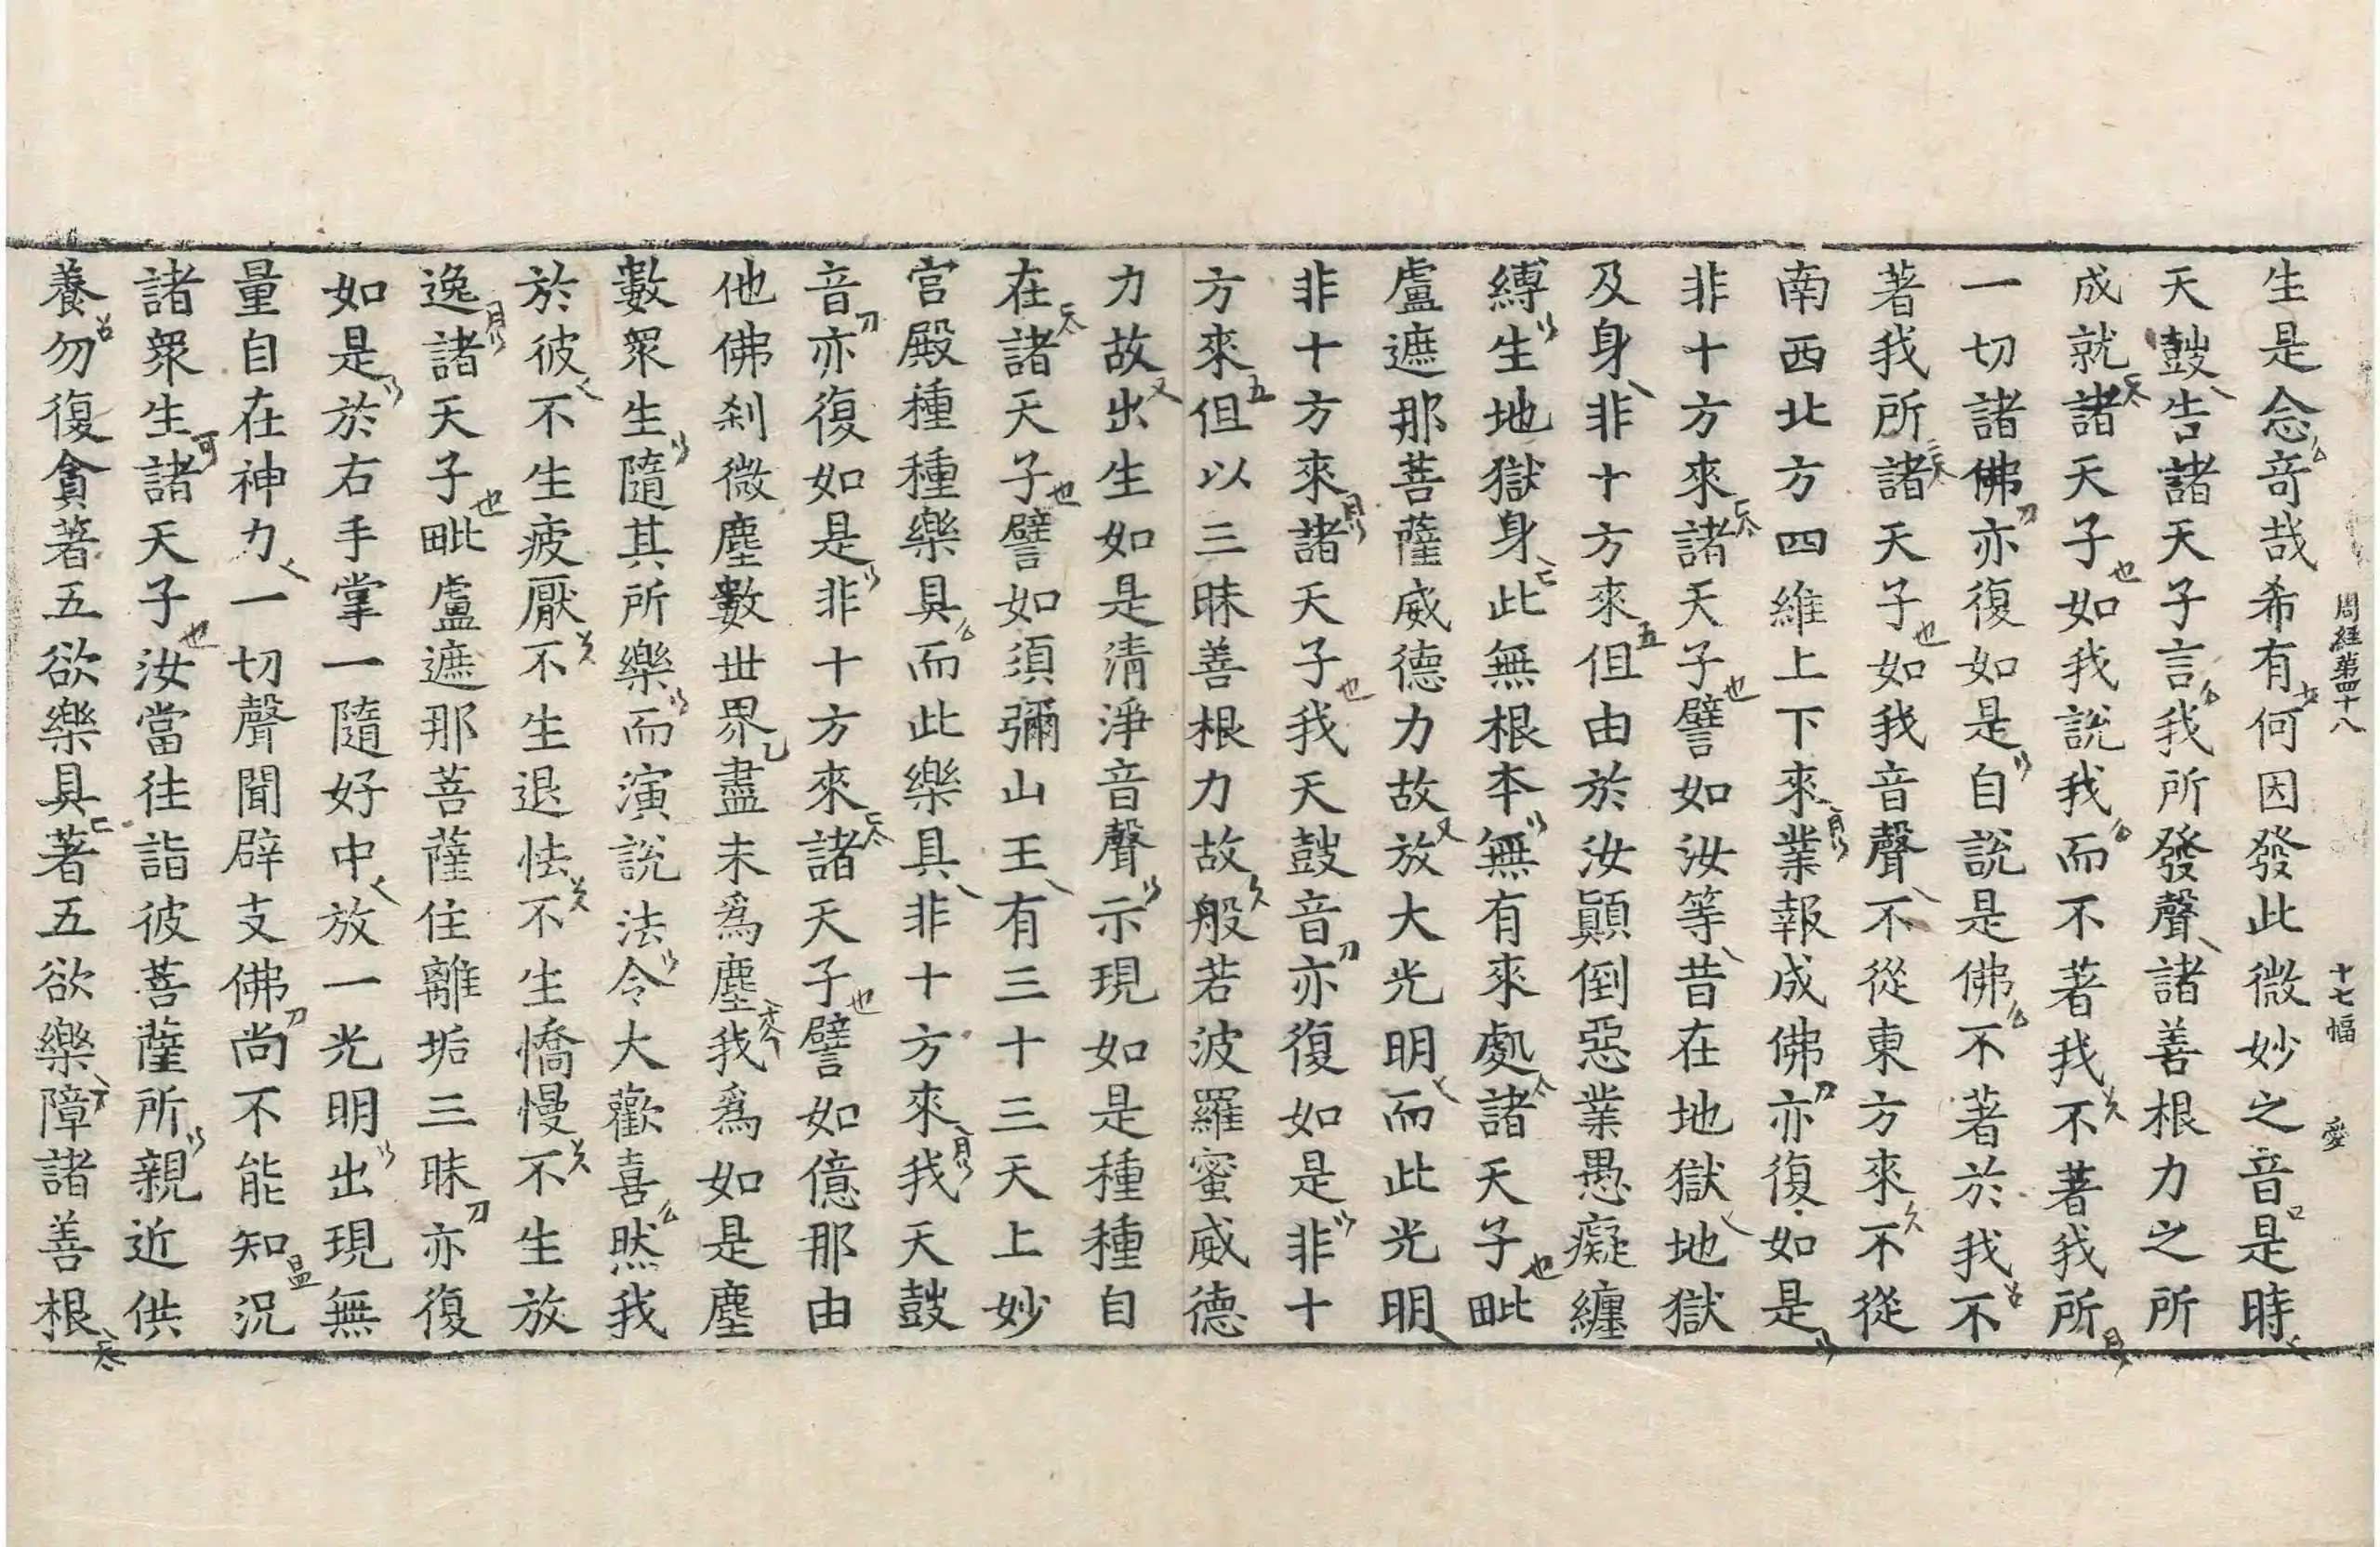 周経第四十八　十七幅　愛
生是念奇哉希有何因發此微妙之音是時
天鼓告諸天子言我所發聲諸善根力之所
成就諸天子如我說我而不著我不著我所
一切諸佛亦復如是自說是佛不著於我不
著我所諸天子如我音聲不從東方來不從
南西北方四維上下來業報成佛亦復如是
非十方來諸天子譬如汝等昔在地獄地獄
及身非十方來但由於汝顚倒惡業愚癡纏
縛生地獄身此無根本無有來處諸天子毗
盧遮那菩薩威德力故放大光明而此光明
非十方來諸天子我天鼓音亦復如是非十
方來但以三昧善根力故般若波羅蜜威德
力故出生如是清淨音聲示現如是種種自
在諸天子譬如須彌山王有三十三天上妙
宮殿種種樂具而此樂具非十方來我天鼓
音亦復如是非十方來諸天子譬如億那由
他佛刹微塵數世界盡末爲塵我爲如是塵
數衆生隨其所樂而演說法令大歡喜然我
於彼不生疲厭不生退怯不生憍慢不生放
逸諸天子毗盧遮那菩薩住離垢三昧亦復
如是於右手掌一隨好中放一光明出現無
量自在神力一切聲聞辟支佛尚不能知況
諸衆生諸天子汝當往詣彼菩薩所親近供
養勿復貪著五欲樂具著五欲樂障諸善根